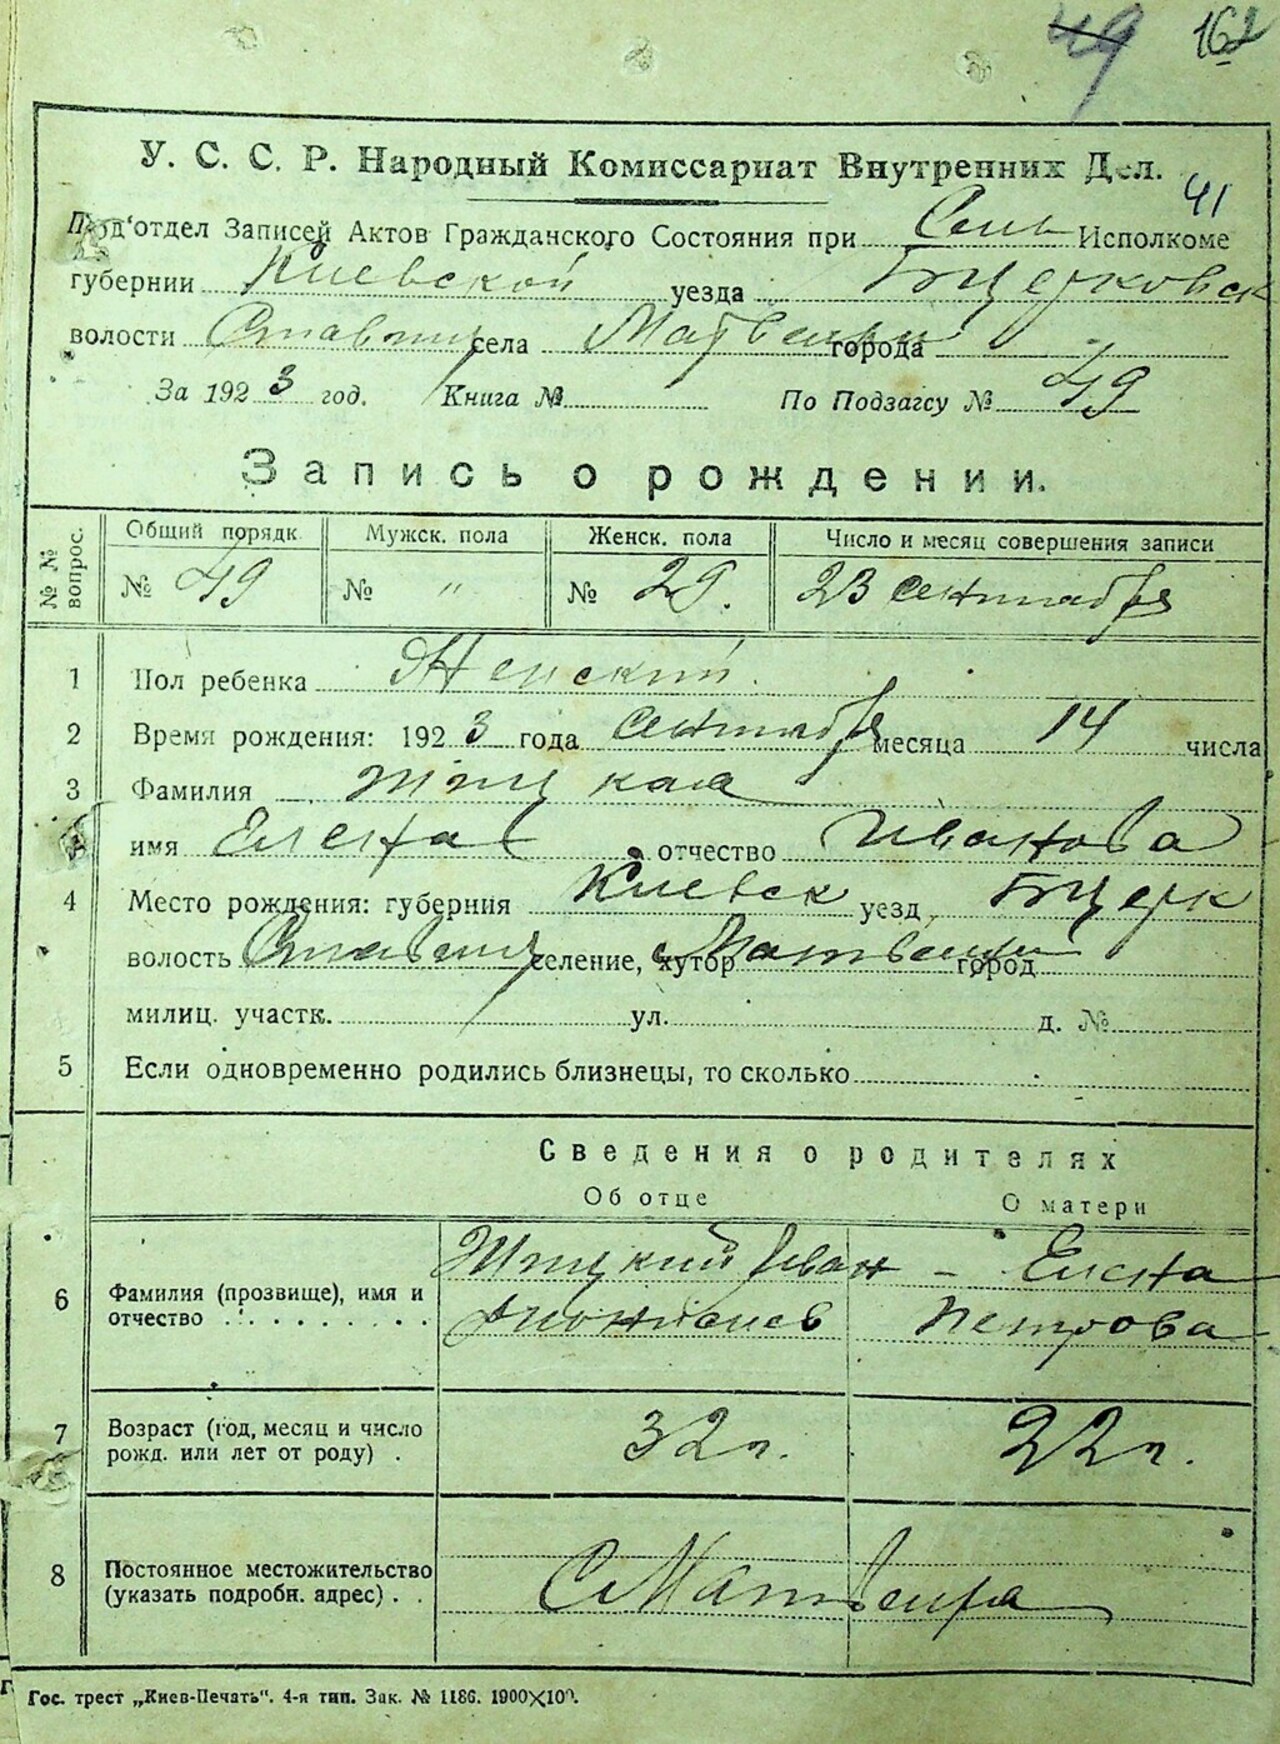 49 162
У. С. С. Р. Народный Комиссариат Внутренних Дел.
41
Под'отдел Записей Актов Гражданского Состояния при Сель Исполкоме
губернии Киевской уезда БЦерковск
волости Ставищ села города
За 1923 год. Книга № По Подзагсу № 49
Запись о рождении.
№№ вопрос.
Общий порядк. Мужск. пола Женск. пола Число и месяц совершения записи
№ 49 № " № 29. 23 сентября
1 Пол ребенка Женский.
2 Время рождения: 1923 года сентября месяца 14 числа
3 Фамилия
имя Елена отчество Иванова
4 Место рождения: губерния Киевск уезд БЦерк
волость Ставищ селение, хутор город
милиц. участк. ул. д. №
5 Если одновременно родились близнецы, то сколько
Сведения о родителях
Об отце О матери
6 Фамилия (прозвище), имя и отчество Иван – Елена
Петрова
7 Возраст (год, месяц и число рожд. или лет от роду) . 32 г. 22 г.
8 Постоянное местожительство (указать подробн. адрес) . .
Гос. трест „Киев-Печать". 4-я тип. Зак. № 1186. 1900×100.